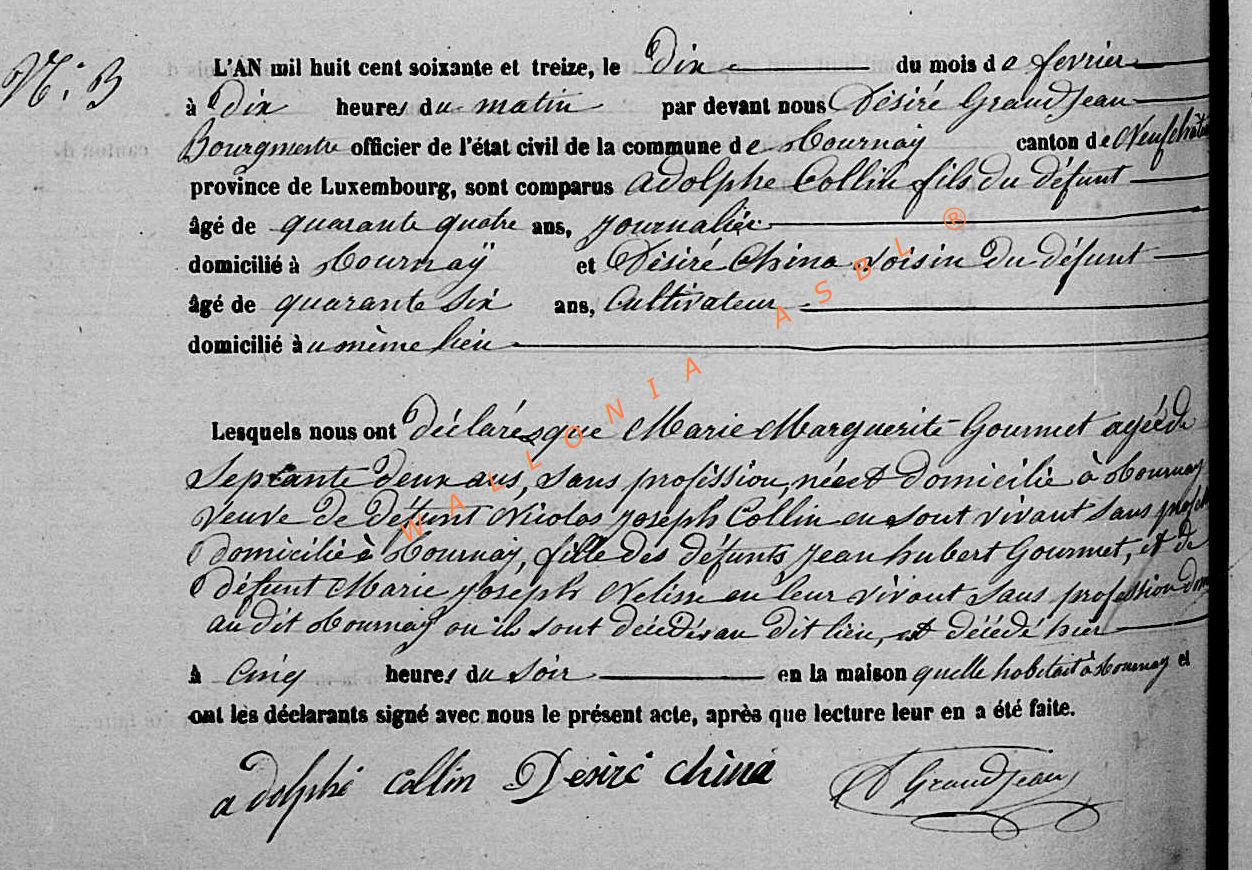 N.° 3
L'AN mil huit cent soixante et treize, le Dix du mois de fevrier
à Dix heures du matin par devant nous Désiré Grandjean
Bourgmestre officier de l'état civil de la commune de Tournay canton de Neufchâteau
province de Luxembourg, sont comparus adolphe Collin fils du défunt
âgé de quarante quatre ans, journalier
domicilié à Tournaÿ et Désiré China voisin du défunt
âgé de quarante six ans, Cultivateur
domicilié au même lieu
Lesquels nous ont déclarés que Marie Marguerite Gourmet agée de
Septante deux ans, sans profession, née et domicilié à Tournay
veuve de défunt Nicolas joseph Collin en sont vivant sans
domicilié à Tournay, fille des défunts jean hubert Gourmet, et de
Défunt Marie joseph Nelisse en leur vivant sans profession
au dit Tournay ou ils sont décédés au dit lieu, est décédé hier
à cinq heures du soir en la maison quelle habitait à Tournay et
ont les déclarants signé avec nous le présent acte, après que lecture leur en a été faite.
adolphe Collin Desiré China D Grandjean
WALLONIA ASBL ®